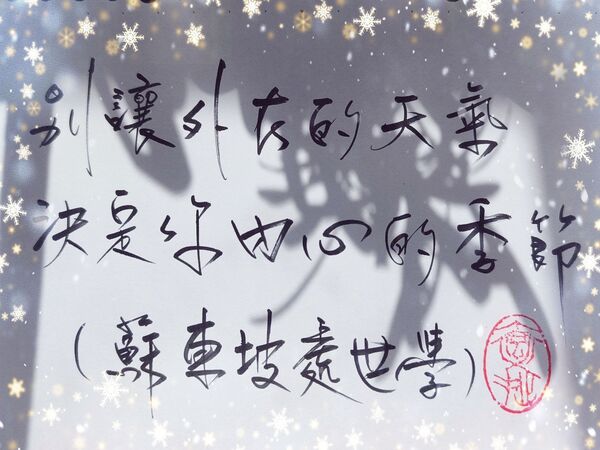 別讓外在的天氣
決定你內心的季節
(蘇東坡處世學)